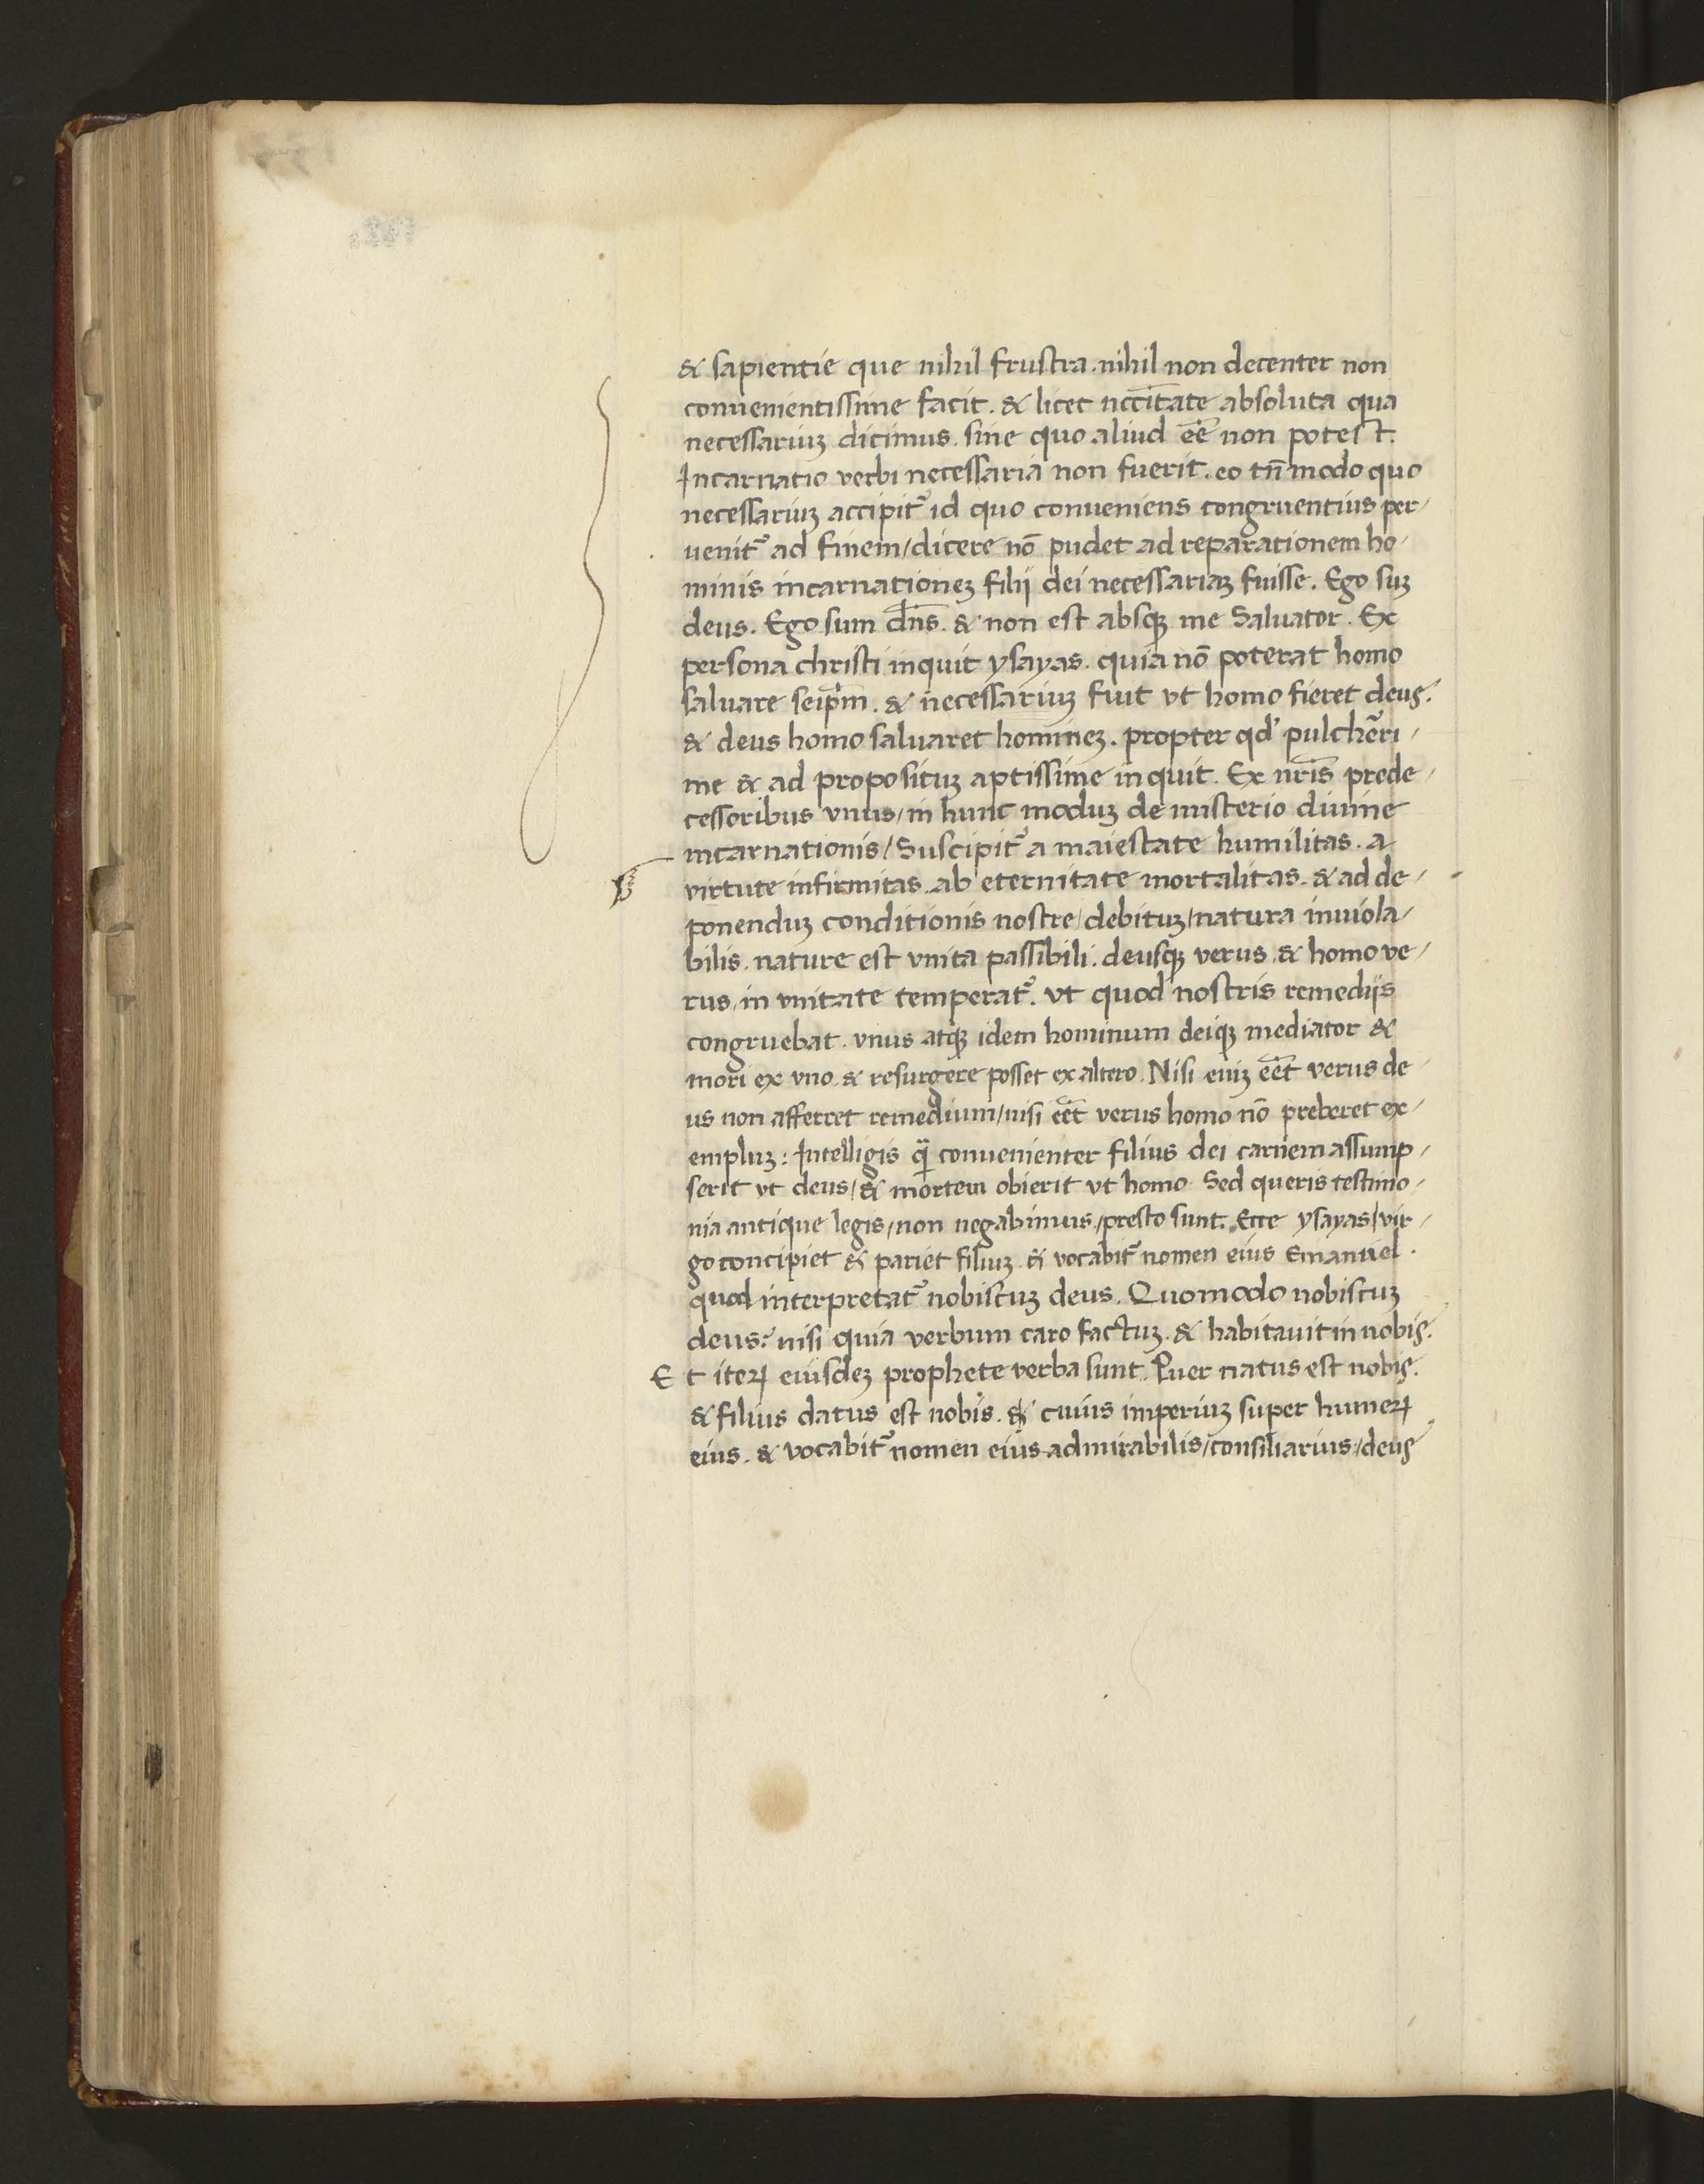 & sapientie que nihil frustra. nihil non decenter non
conuenientissime facit. & licet nccītate absoluta qua
necessariuꝫ dicimus. sine quo aliud eē non potest.
Incarnatio verbi necessaria non fuerit. eo tn̄ modo quo
necessariuꝫ accipit᷑ id quo conueniens congruentius per/
uenit᷑ ad finem/dicere nō pudet ad reparationem ho/
minis incarnationeꝫ filij dei necessariaꝫ fuisse. Ego suꝫ
deus. Ego sum dn̄s. & non est absqꝫ me Saluator. Ex
persona christi inquit ysayas. quia nō poterat homo
saluare seip̄m. & necessariuꝫ fuit vt homo fieret deus.
& deus homo saluaret homineꝫ. propter qd' pulchēri/
me & ad proposituꝫ aptissime inquit. Ex nr̄is prede/
cessoribus vnus/in hunc moduꝫ de misterio diuine
incarnationis/Suscipit᷑ a maiestate humilitas. a
virtute infirmitas. ab eternitate mortalitas. & ad de/
ponenduꝫ conditionis nostre/debituꝫ/natura inuiola/
bilis. nature est vnita passibili. deusqꝫ verus. & homo ve/
rus/in vnitate temperat᷑. vt quod nostris remedijs
congruebat. vnus atqꝫ idem hominum deiqꝫ mediator &
mori ex vno. & resurgere posset ex altero. Nisi eniꝫ eēt verus de/
us non afferret remedium/nisi eēt verus homo nō preberet ex/
empluꝫ: Intelligis q̄ conuenienter filius dei carnem assump/
serit vt deus/& mortem obierit vt homo. Sed queris testimo/
nia antique legis/non negabimus/presto sunt. Ecce ysayas/vir/
go concipiet & pariet filiuꝫ. & vocabit᷑ nomen eius Emanuel.
quod interpretat᷑ nobiscuꝫ deus. Quomodo nobiscuꝫ
deus? nisi quia verbum caro factuꝫ. & habitauit in nobis.
Et iteꝝ eiusdeꝫ prophete verba sunt. Puer natus est nobis.
& filius datus est nobis. & cuius imperiuꝫ super humeꝝ
eius. & vocabit᷑ nomen eius admirabilis/consiliarius/deus